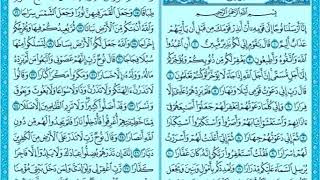 بِسْمِ اللَّهِ الرَّحْمَٰنِ الرَّحِيمِ
إِنَّا أَرْسَلْنَا نُوحًا إِلَىٰ قَوْمِهِ أَنْ أَنذِرْ قَوْمَكَ مِن قَبْلِ أَن يَأْتِيَهُمْ
عَذَابٌ أَلِيمٌ قَالَ يَٰقَوْمِ إِنِّي لَكُمْ نَذِيرٌ مُّبِينٌ أَنِ اعْبُدُوا
اللَّهَ وَاتَّقُوهُ وَأَطِيعُونِ يَغْفِرْ لَكُم مِّن ذُنُوبِكُمْ وَيُؤَخِّرْكُمْ
إِلَىٰ أَجَلٍ مُّسَمًّى إِنَّ أَجَلَ اللَّهِ إِذَا جَاءَ لَا يُؤَخَّرُ لَوْ كُنتُمْ
تَعْلَمُونَ قَالَ رَبِّ إِنِّي دَعَوْتُ قَوْمِي لَيْلًا وَنَهَارًا فَلَمْ يَزِدْهُمْ
دُعَاءِي إِلَّا فِرَارًا وَإِنِّي كُلَّمَا دَعَوْتُهُمْ لِتَغْفِرَ لَهُمْ جَعَلُوا
أَصَٰبِعَهُمْ فِي ءَاذَانِهِمْ وَاسْتَغْشَوْا ثِيَابَهُمْ وَأَصَرُّوا وَاسْتَكْبَرُوا
اسْتِكْبَارًا ثُمَّ إِنِّي دَعَوْتُهُمْ جِهَارًا ثُمَّ إِنِّي أَعْلَنتُ لَهُمْ وَأَسْرَرْتُ
لَهُمْ إِسْرَارًا فَقُلْتُ اسْتَغْفِرُوا رَبَّكُمْ إِنَّهُ كَانَ غَفَّارًا
يُرْسِلِ السَّمَاءَ عَلَيْكُم مِّدْرَارًا
طِبَاقًا وَجَعَلَ الْقَمَرَ فِيهِنَّ نُورًا وَجَعَلَ الشَّمْسَ سِرَاجًا
وَاللَّهُ أَنبَتَكُم مِّنَ الْأَرْضِ نَبَاتًا ثُمَّ يُعِيدُكُمْ فِيهَا وَيُخْرِجُكُمْ
إِخْرَاجًا وَاللَّهُ جَعَلَ لَكُمُ الْأَرْضَ بِسَاطًا لِّتَسْلُكُوا مِنْهَا
سُبُلًا فِجَاجًا قَالَ نُوحٌ رَّبِّ إِنَّهُمْ عَصَوْنِي وَاتَّبَعُوا مَن لَّمْ يَزِدْهُ
مَالُهُ وَوَلَدُهُ إِلَّا خَسَارًا وَمَكَرُوا مَكْرًا كُبَّارًا وَقَالُوا لَا تَذَرُنَّ
ءَالِهَتَكُمْ وَلَا تَذَرُنَّ وَدًّا وَلَا سُوَاعًا وَلَا يَغُوثَ وَيَعُوقَ وَنَسْرًا
وَقَدْ أَضَلُّوا كَثِيرًا وَلَا تَزِدِ الظَّٰلِمِينَ إِلَّا ضَلَٰلًا مِّمَّا
خَطِيئَٰتِهِمْ أُغْرِقُوا فَأُدْخِلُوا نَارًا فَلَمْ يَجِدُوا لَهُم مِّن دُونِ اللَّهِ
أَنصَارًا وَقَالَ نُوحٌ رَّبِّ لَا تَذَرْ عَلَى الْأَرْضِ مِنَ الْكَٰفِرِينَ
دَيَّارًا إِنَّكَ إِن تَذَرْهُمْ يُضِلُّوا عِبَادَكَ وَلَا يَلِدُوا إِلَّا فَاجِرًا
كَفَّارًا رَّبِّ اغْفِرْ لِي وَلِوَٰلِدَيَّ وَلِمَن دَخَلَ بَيْتِيَ